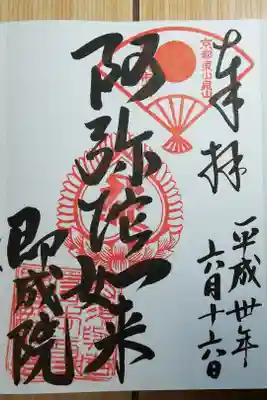 奉拝
平成卅年
六月十六日
阿弥陀如来
即成院
京都東山泉山